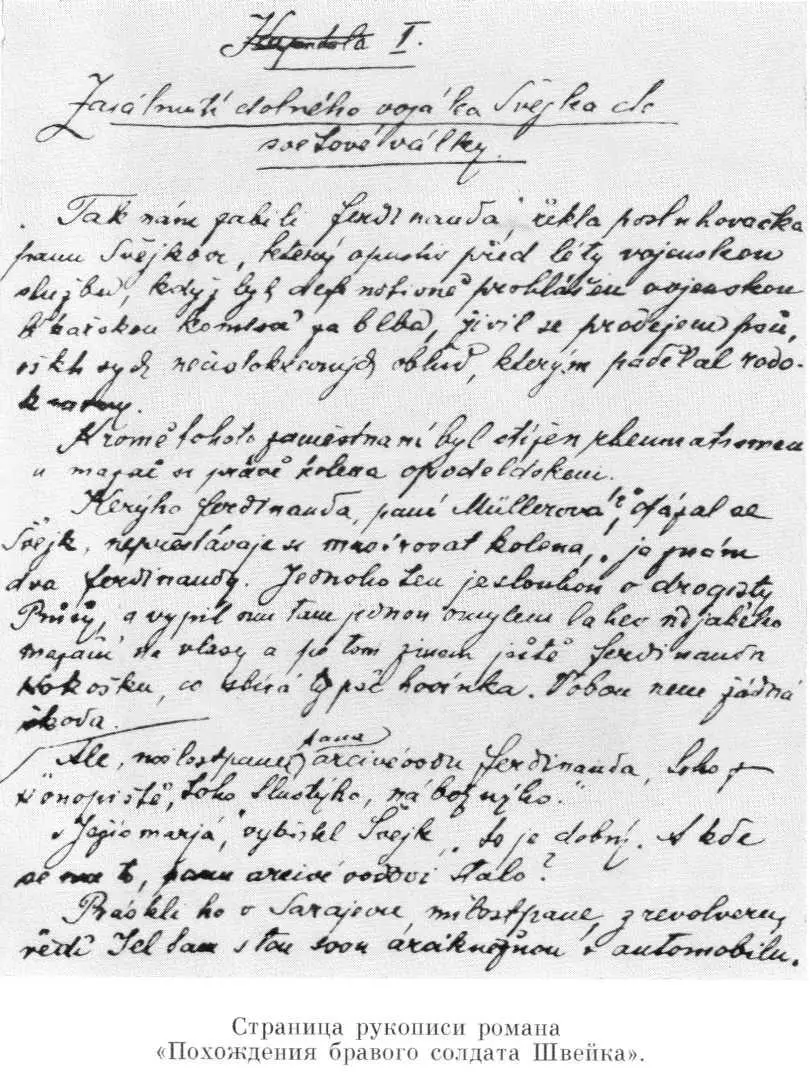 Kapitola I.
Zasáhnutí dobrého vojáka Švejka do
světové války.
"Tak nám zabili Ferdinanda", řekla posluhovačka
panu Švejkovi, který opustiv před léty vojenskou
službu, když byl definitivně prohlášen vojenskou
lékařskou komisí za blba, živil se prodejem psů,
ošklivých nečistokrevných oblud, kterým padělal rodo-
kmeny.
Kromě tohoto zaměstnaní byl stižen rheumatismem
a mazal si právě kolena opodeldokem.
"Kerýho Ferdinanda, paní Müllerová?", otázal se
Švejk, nepřestávaje si masírovat kolena, "ja znám
dva Ferdinandy. Jednoho ten je sluhou u drogisty
Průšy, a vypil mu tam jednou omylem lahev nějakého
mazání na vlasy a po tom znam ještě Ferdinanda
Kokošku, co sbírá ty psí hovínka. Vobou neni žádná
škoda.
Ale, milostpane, pana arcivévodu Ferdinanda, toho z
Konopiště, toho tlustýho, nábožnýho."
"Ježíšmarjá," vykřikl Švejk, "to je dobrý. A kde
se mu to, panu arcivévodovi stalo?
Práskli ho v Sarajevu, milostpane, z revolveru,
vědí. Jel tam s tou svou arcikněžnou v automobilu.
Страница рукописи романа
«Похождения бравого солдата Швейка».